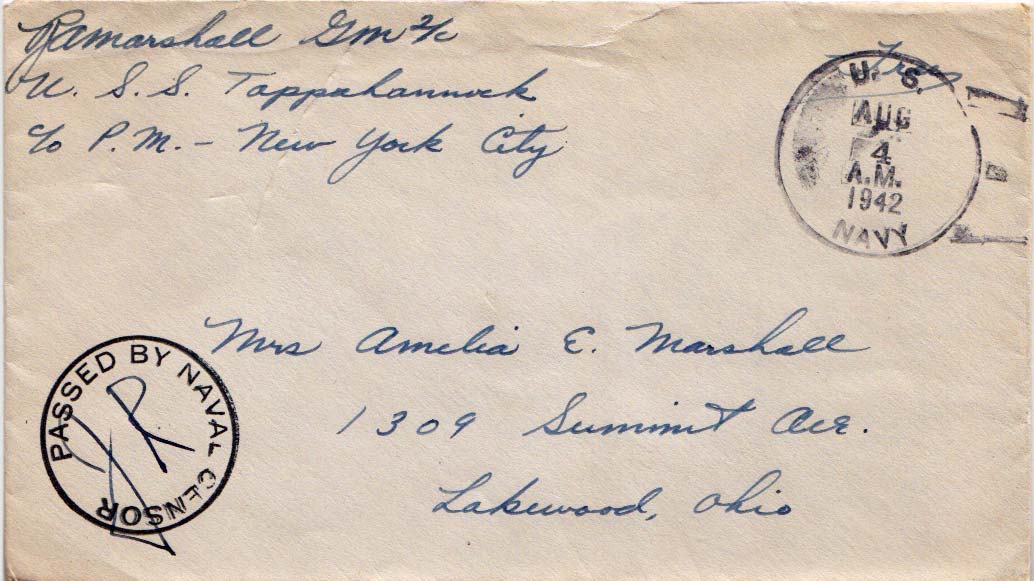 R A Marshall Gm 2/c
U. S. S. Tappahannock
c/o P.M. - New York City
Free
U. S.
AUG
4
A.M.
1942
NAVY
PASSED BY NAVAL CENSOR
Mrs Amelia E. Marshall
1309 Summit Ave.
Lakewood, Ohio